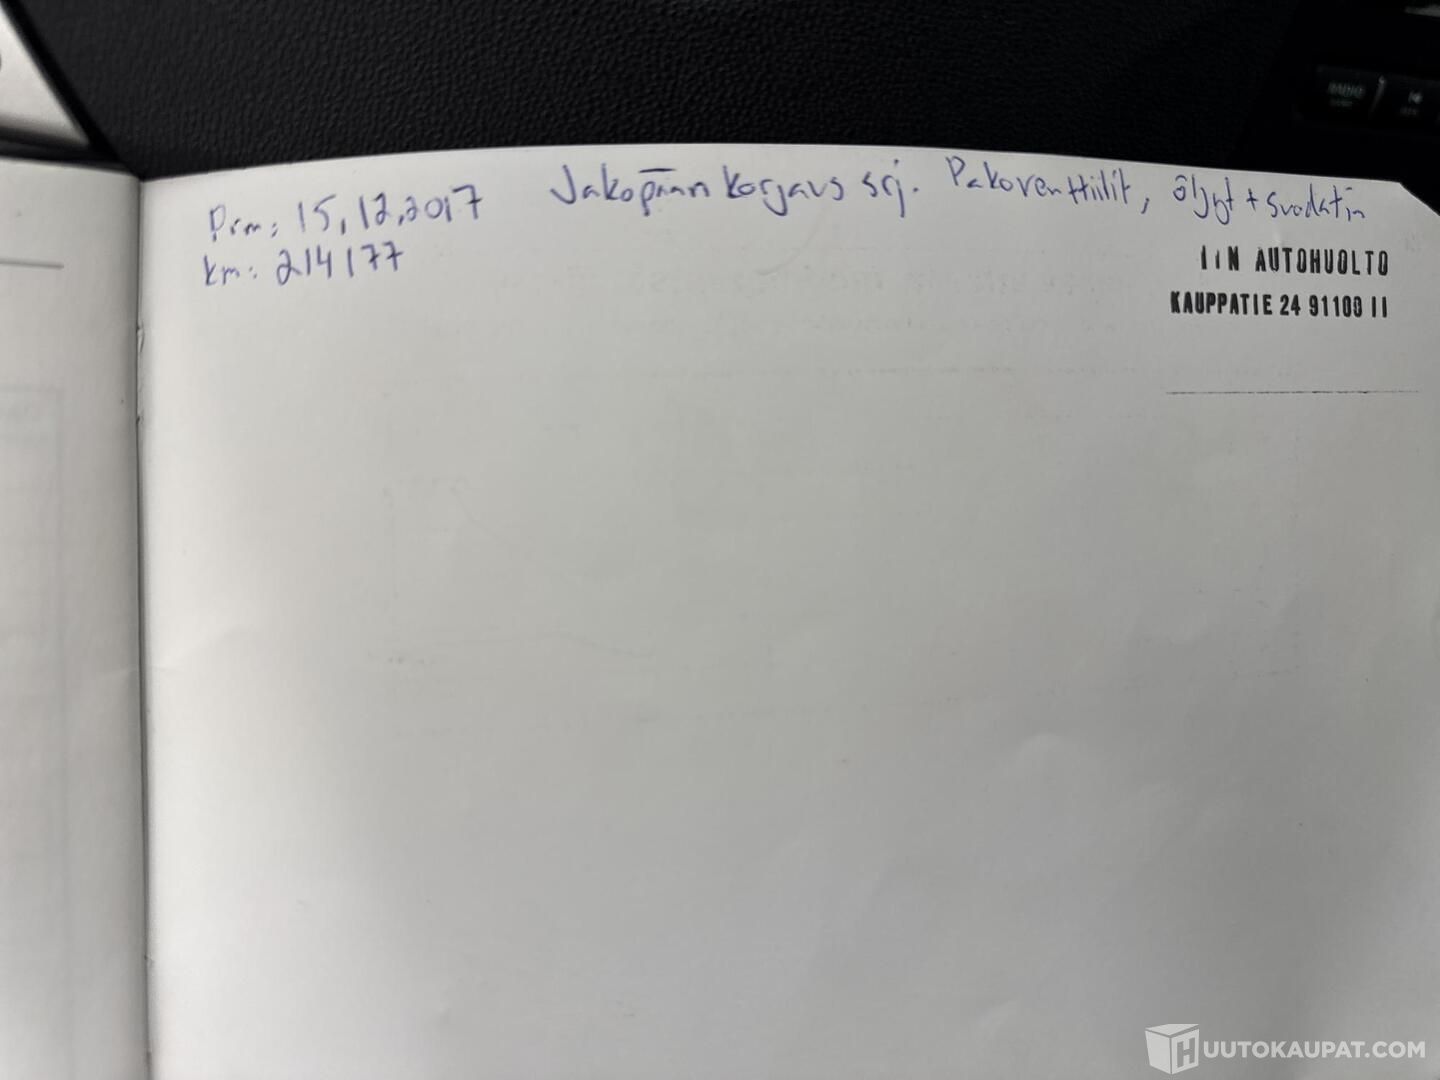 RADIO
Pvm: 15,12,2017 Jakopään korjaus srj. Pakoventtiilit, öljyt + suodatin
km: 214177
IIN AUTOHUOLTO
KAUPPATIE 24 91100 II
HUUTOKAUPAT.COM